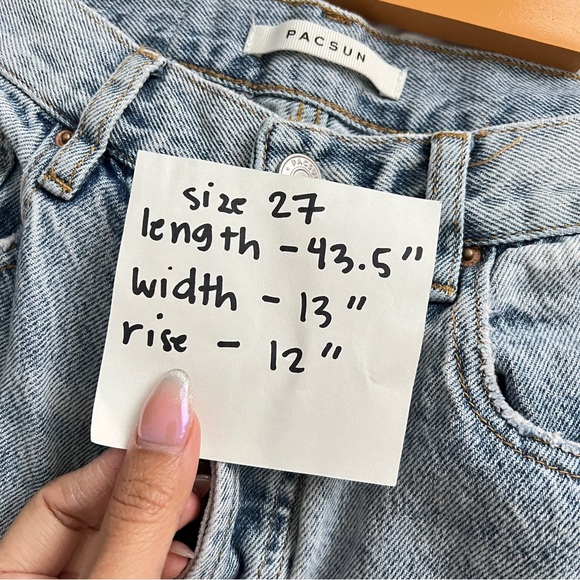 PACSUN
PACSUN
size 27
length - 43.5"
width - 13"
rise - 12"